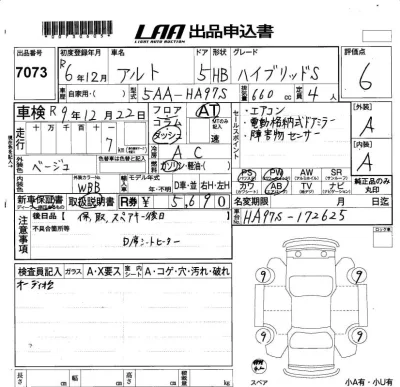 LAA 出品申込書
LIGHT AUTO AUCTION
出品番号 初度登録年月 車名 ドア 形状 グレード 評価点
7073 R6年12月 アルト 5 HB ハイブリッドS 6
車歴 自家用( ) 型式 5AA-HA97S 排気量 660 cc 定員 4人
車検 R9年12月22日 フロア コラム ダッシュ AT
セールスポイント
・エアコン
・電動格納式ドアミラー
・障害物センサー
【外装】 A
【内装】 A
走行 十万 万 千 百 十 一
7 km
冷房 AC
燃料 ガソリン・軽油( )
外装色 ベージュ
外装カラーNo. WBB
輸入車 モデル年式 年・不明 D車・並 右H・左H
PS AB AW SR
カワ TV ナビ
純正品のみ丸印
新車保証書 取扱説明書 R券 ¥ 5,690
名変期限 月 日迄
車台No. HA97S-172625
注意事項
後日品( 保,取,スペアキー後日 )
不具合箇所等
D席シートヒーター
検査員記入 ガラス A・X要ス 内シート A・コゲ・穴・汚れ・破れ
オーディオ欠
9 9
9 9
スペア 小A有・小U有
長さ cm 幅 cm 高さ cm 積載量 kg